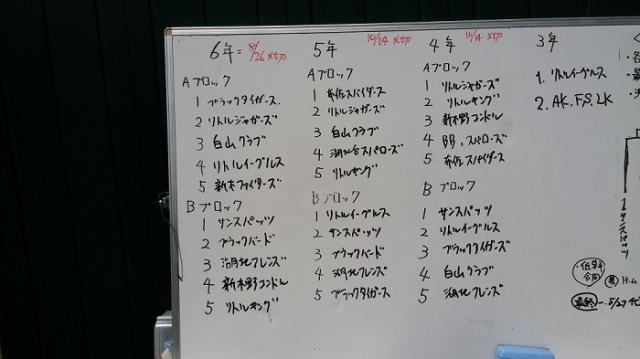 6年 = 8/26 〆切
Aブロック
1 ブラックタイガース
2 リトルジャガーズ
3 白山クラブ
4 リトルイーグルス
5 新木ファイターズ
Bブロック
1 サンスパッツ
2 ブラックバード
3 湖北フレンズ
4 新木野コンドル
5 リトルキング
5年 10/14 〆切
Aブロック
1 布佐スパイダーズ
2 リトルジャガーズ
3 白山クラブ
4 湖北台スパローズ
5 リトルキング
Bブロック
1 リトルイーグルス
2 サンスパッツ
3 ブラックバード
4 湖北フレンズ
5 ブラックタイガース
4年 10/14 〆切
Aブロック
1 リトルジャガーズ
2 リトルキング
3 新木野コンドル
4 BB.スパローズ
5 布佐スパイダーズ
Bブロック
1 サンスパッツ
2 リトルイーグルス
3 ブラックタイガーズ
4 白山クラブ
5 湖北フレンズ
3年
1. リトルイーグルス
2. AK.FS.LK
1サンスパッツ
・低学年
合同
最終
5/27